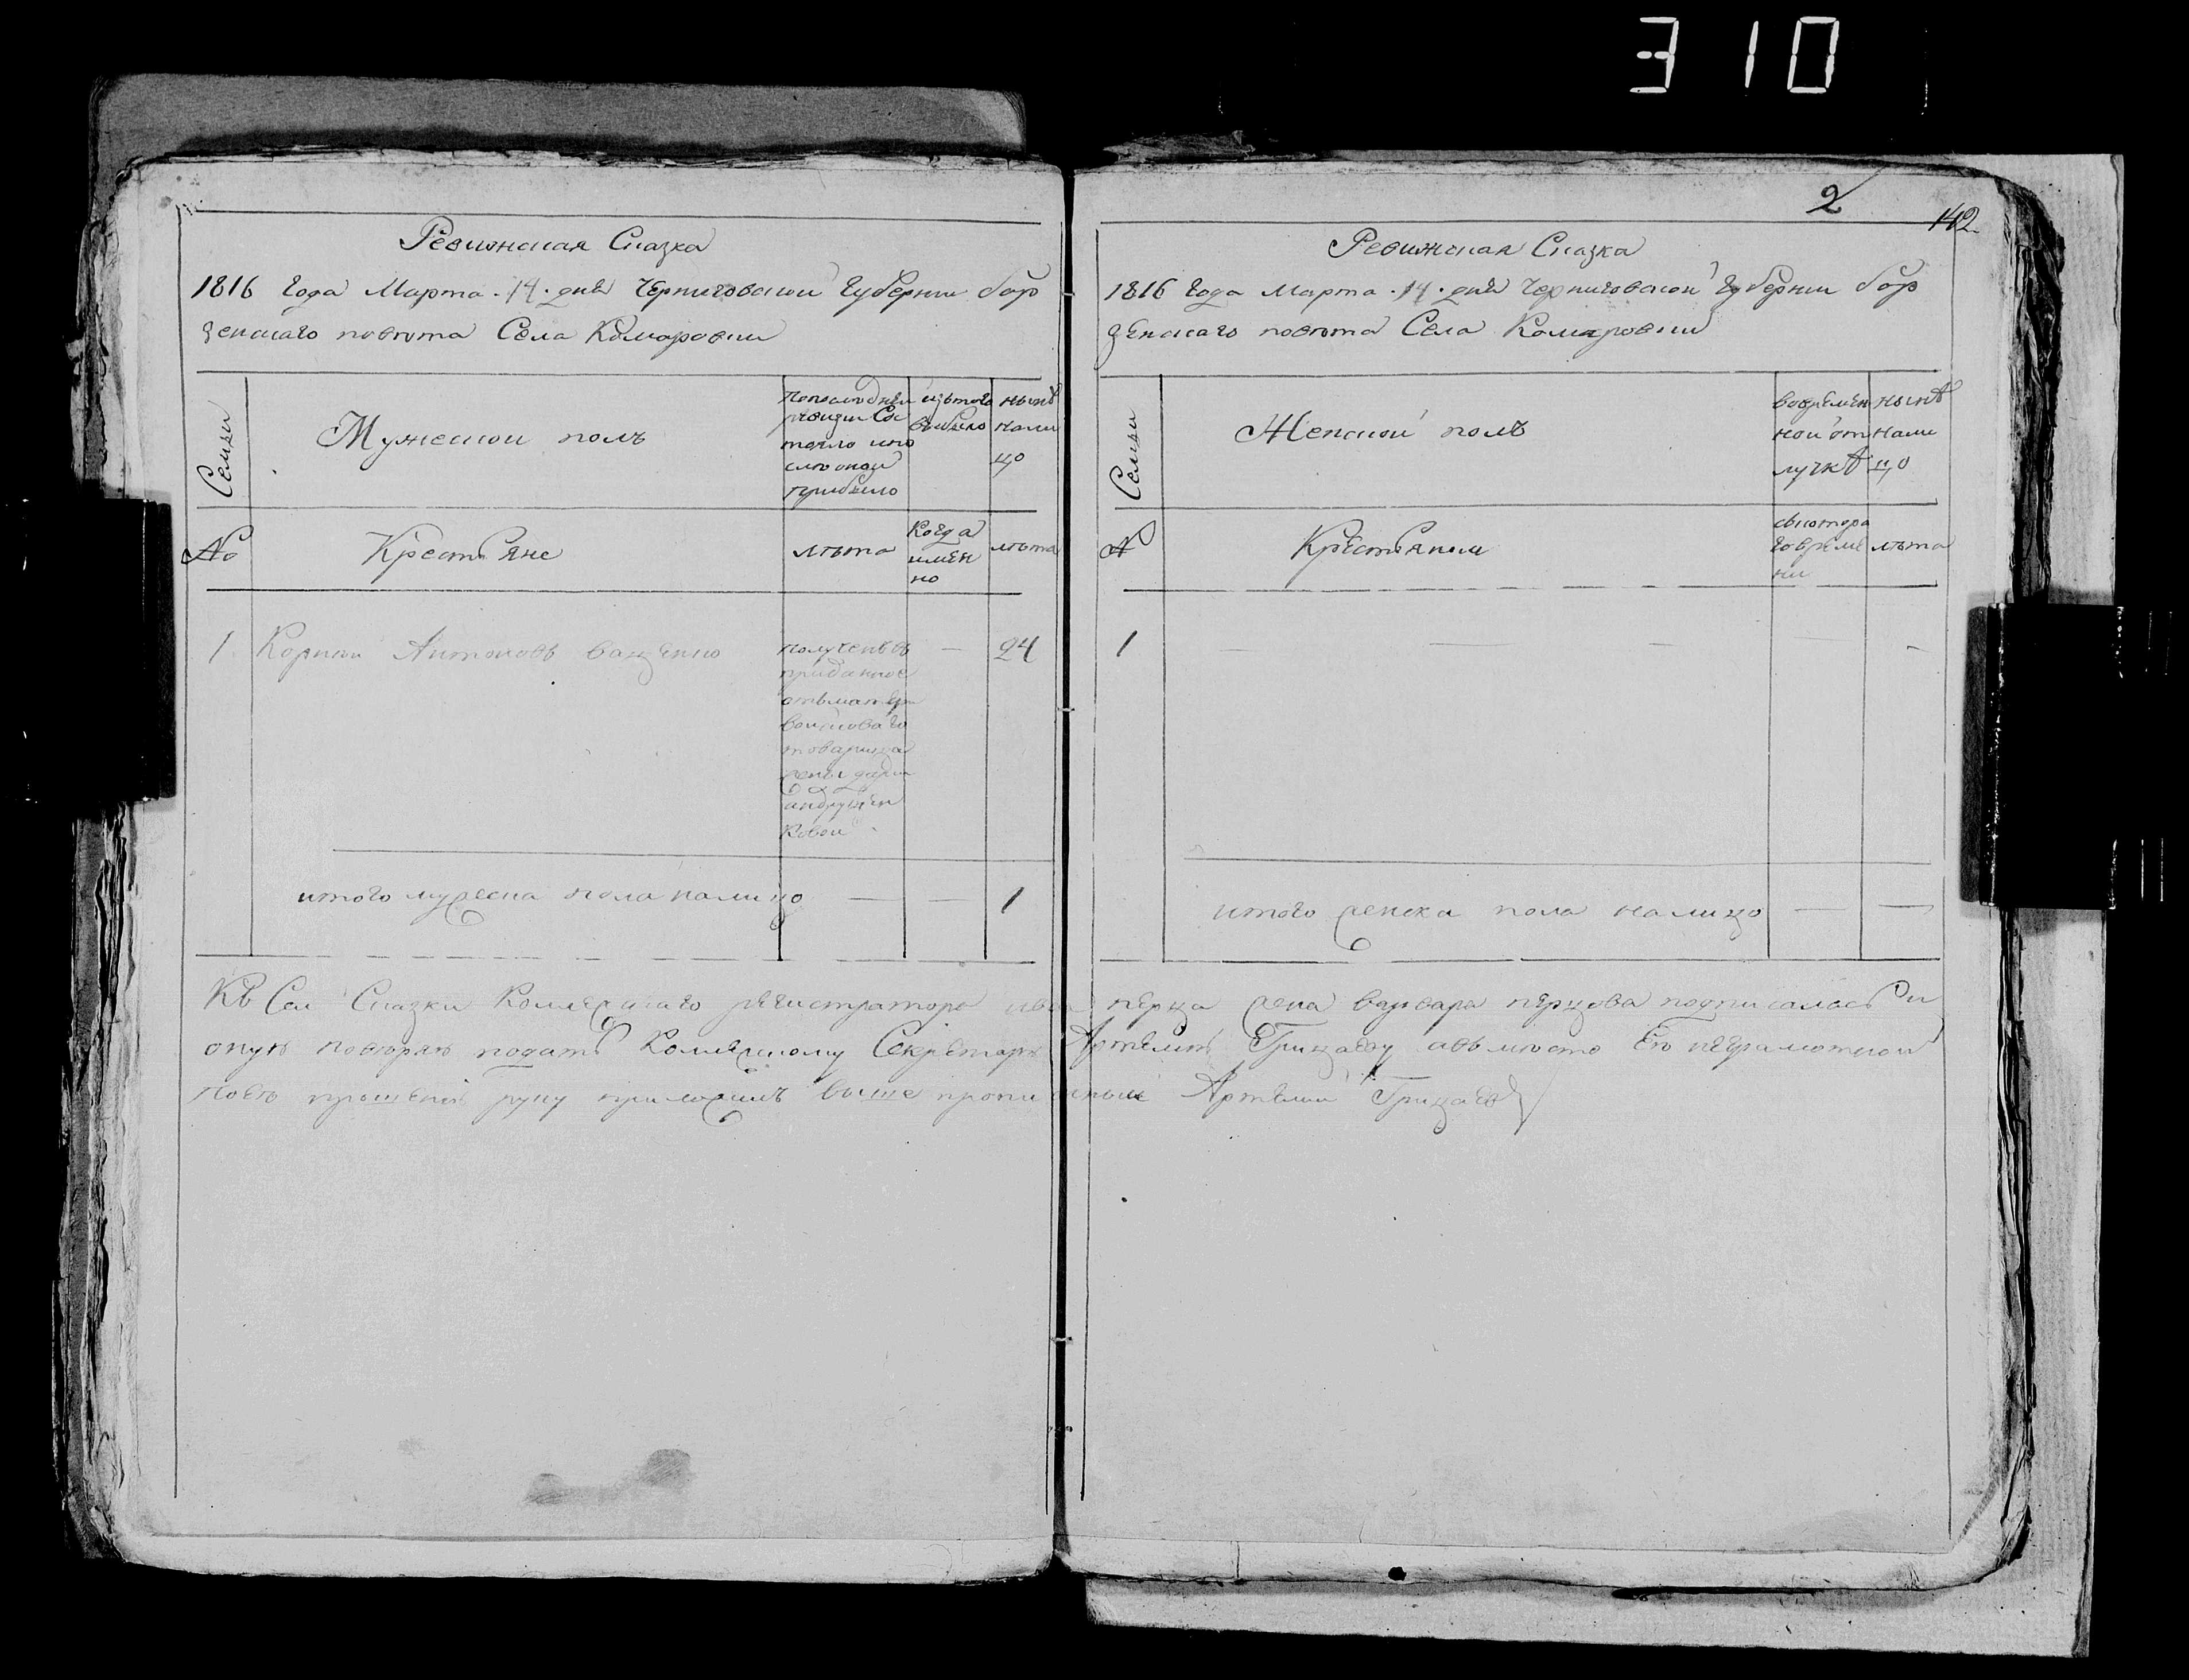 310
Ревижская Сказка
1816 года Марта 14 дня Черниговской Губернии бор
зенскаго повета Села Комаровки
Семьи
Мужеской полъ
Попоследней
ревизии Сос
тояло ипо
сле оной
прибыло
изътого
выбыло
ныне
нали
цо
№
Крестьяне
лета
Когда
имен
но
лета
1 Корней Антоновъ ващенко
полученъ в
приданное
отъматери
войсковаго
товарища
жены дарьи
андрущен
ковой
—
24
итого мужеска пола налицо — — 1
2
142
Ревижская Сказка
1816 года Марта 14 дня Черниговской Губернии бор
зенскаго повета Села Комаровки
Семьи
Женской полъ
вовремен
ной от
лучкѣ
ныне
нали
цо
№
Крестьянки
съкотора
го време
ни
лета
1 — — — — -
итого женска пола налицо — —
Къ Сей Сказки Коллежскаго регистратора ива перца жена варвара перцова подписалась и
оную поверяю подать Коллежскому Секретарю Артемию Грицаеву авъместо Ея неграмотной
поея прошению руку приложилъ выше прописаный Артемий Грицаевъ